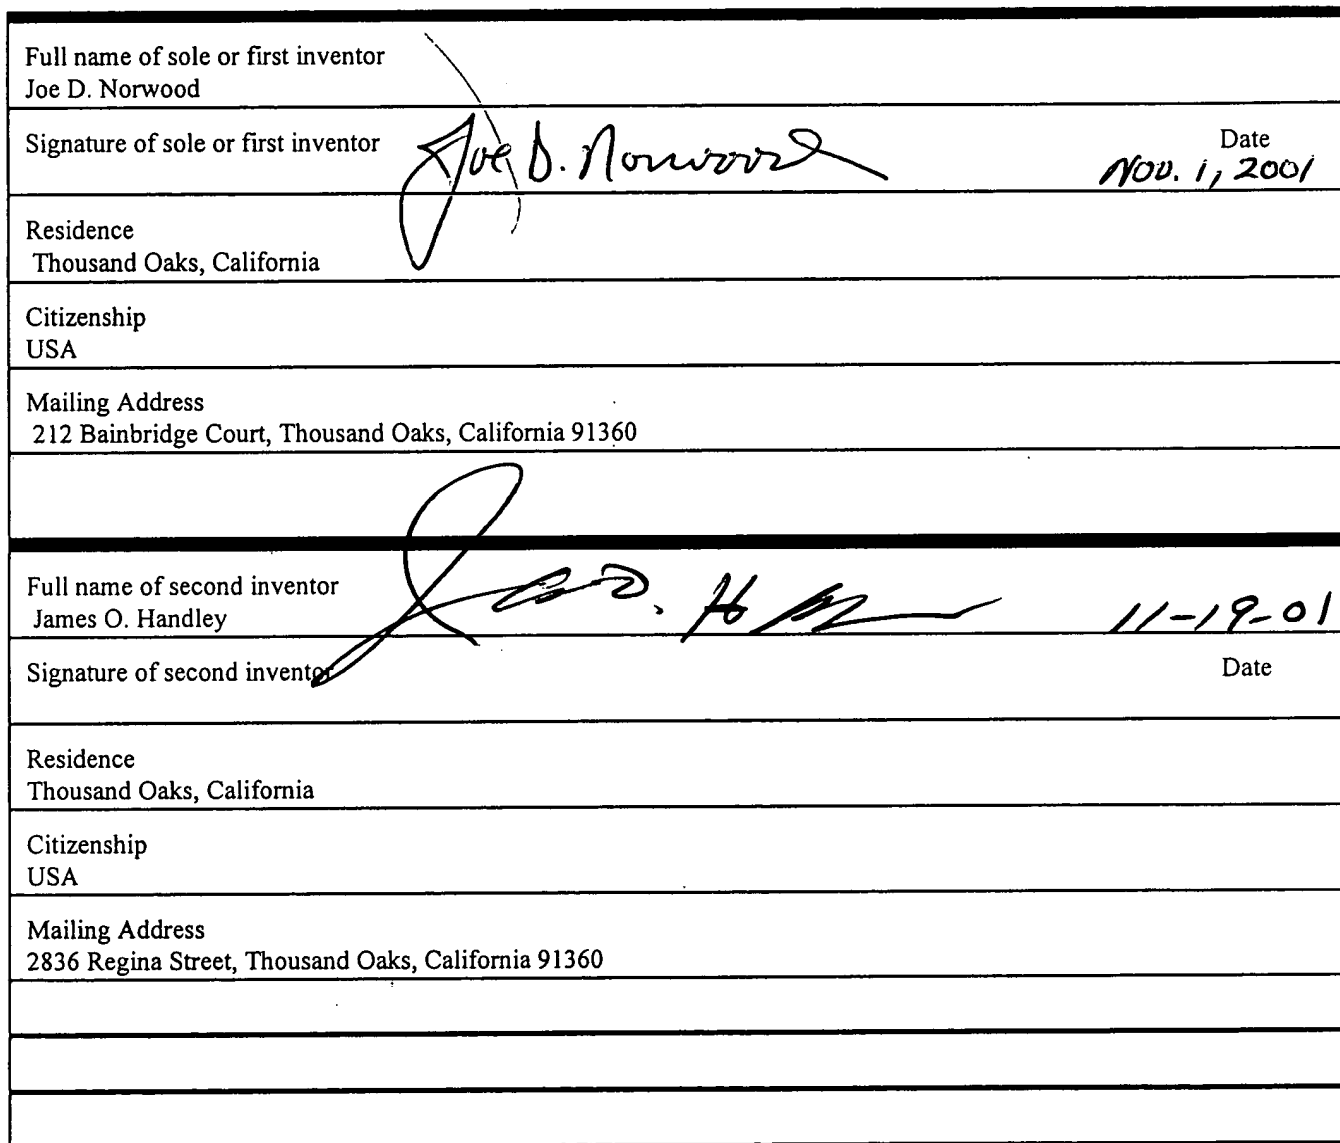 Full name of sole or first inventor
Joe D. Norwood
Signature of sole or first inventor Joe D. Norwood Date
Nov. 1, 2001
Residence
Thousand Oaks, California
Citizenship
USA
Mailing Address
212 Bainbridge Court, Thousand Oaks, California 91360
Full name of second inventor
James O. Handley 11-19-01
Signature of second inventor Date
Residence
Thousand Oaks, California
Citizenship
USA
Mailing Address
2836 Regina Street, Thousand Oaks, California 91360